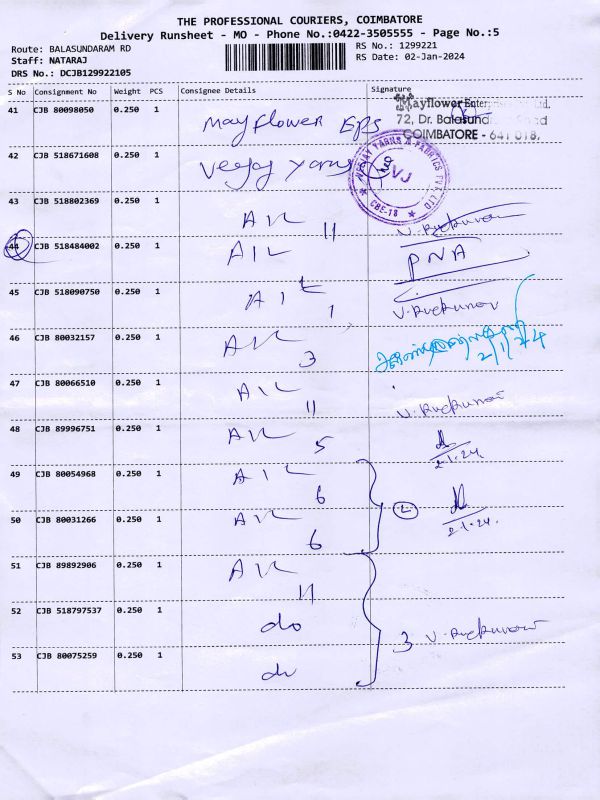 THE PROFESSIONAL COURIERS, COIMBATORE
Delivery Runsheet - MO - Phone No.:0422-3505555 - Page No.:5
Route: BALASUNDARAM RD
Staff: NATARAJ
DRS No.: DCJB129922105
RS No.: 1299221
RS Date: 02-Jan-2024
S No Consignment No Weight PCS Consignee Details Signature
41 CJB 80098050 0.250 1 Mayflower Eps
Mayflower Enterp Ltd.
72, Dr. Balasund Road
COIMBATORE - 641 018.
42 CJB 518671608 0.250 1 Veejay Yarns
VEEJAY YARNS & FABRICS PVT LTD
VJ
CBE-18
43 CJB 518802369 0.250 1 11
44 CJB 518484002 0.250 1 PNA
45 CJB 518090750 0.250 1 1
46 CJB 80032157 0.250 1 3 2/1/24
47 CJB 80066510 0.250 1 11
48 CJB 89996751 0.250 1 5 2-1-24
49 CJB 80054968 0.250 1 6
50 CJB 80031266 0.250 1 6 2-1-24.
51 CJB 89892906 0.250 1 11
52 CJB 518797537 0.250 1 do 3
53 CJB 80075259 0.250 1 do